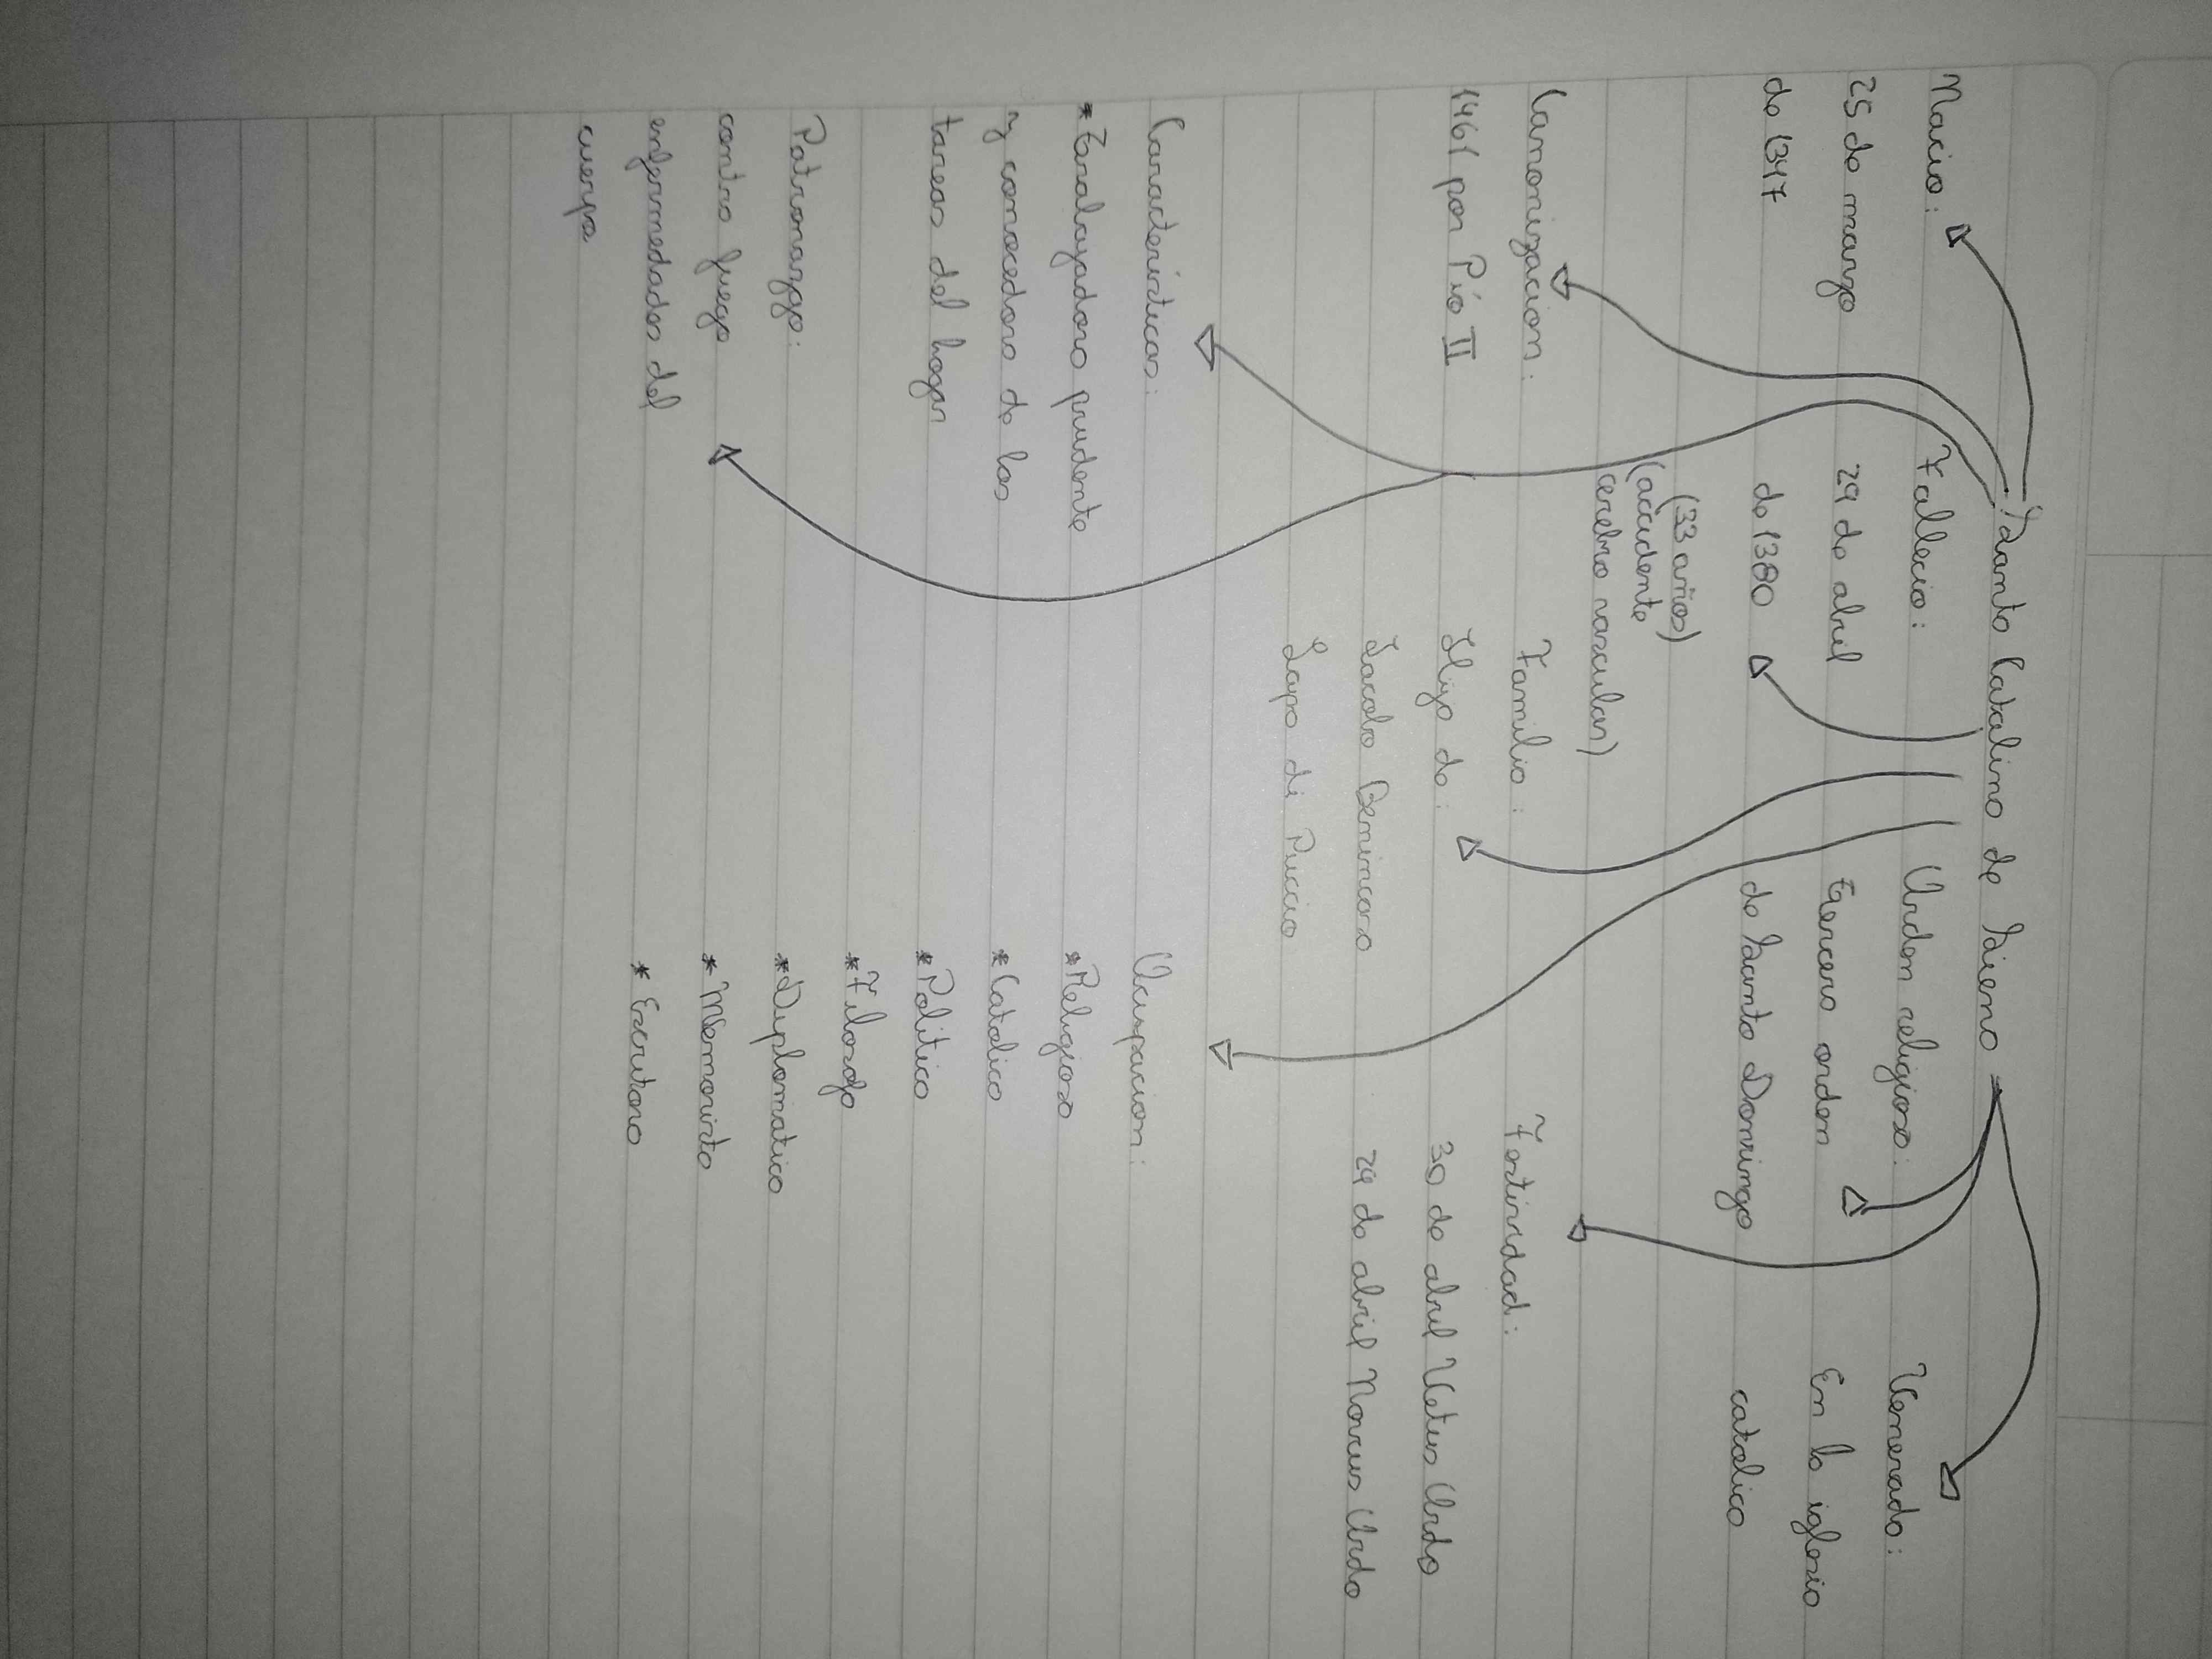 Santa Catalina de Siena
Nacio:
25 de marzo
de 1347
Fallecio:
29 de abril
de 1380
(33 años)
(accidente
cerebro vascular)
Orden religiosa:
tercera orden
de Santo Domingo
Venerada:
En la iglesia
catolica
Canonizacion:
1461 por Pío II
Familia:
Hija de:
Iacobo Benincasa
Lapa di Puccio
Festividad:
30 de abril Vetus Ordo
29 de abril Novus Ordo
Caracteristicas:
*Trabajadora prudente
y conocedora de las
tareas del hogar
Patronazgo:
contra fuego
enfermedades del
cuerpo
Ocupacion:
*Religiosa
*Catolica
*Politica
*Filosofa
*Diplomatica
*Memorista
*Escritora